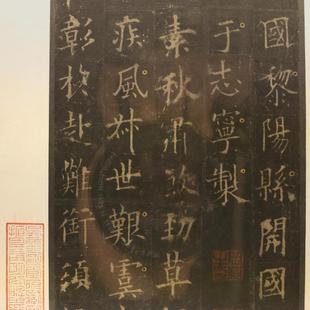 國黎陽縣開國
于志寧製
素秋肅煞勁草
疾風叔世艱虞
彰於赴難銜須